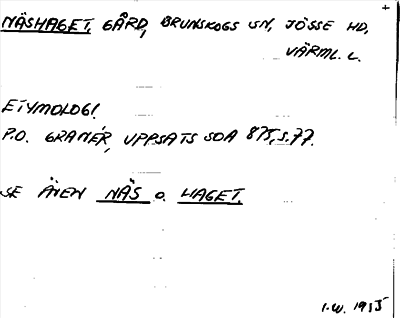 NÄSHAGET, GÅRD, BRUNSKOGS SN, JÖSSE HD,
VÄRML. L.
ETYMOLOGI
P.O. GRANÉR, UPPSATS SOA 875, S. 77.
SE ÄVEN NÄS O. HAGET.
I.W. 1955